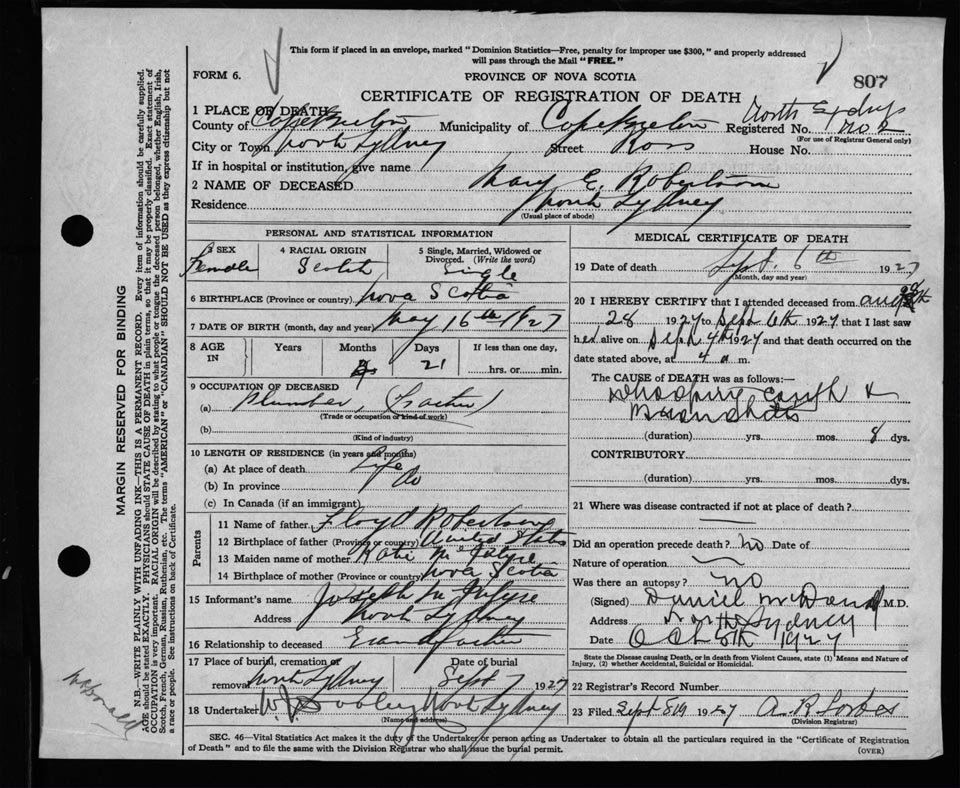 This form if placed in an envelope, marked "Dominion Statistics—Free, penalty for improper use $300," and properly addressed
will pass through the Mail "FREE."
FORM 6.
PROVINCE OF NOVA SCOTIA
807
CERTIFICATE OF REGISTRATION OF DEATH
North Sydney
1 PLACE OF DEATH
County of Cape Breton Municipality of Cape Breton Registered No.
(For use of Registrar General only)
City or Town North Sydney Street Ross House No.
If in hospital or institution, give name
2 NAME OF DECEASED Mary E. Robertson
Residence North Sydney
(Usual place of abode)
PERSONAL AND STATISTICAL INFORMATION
3 SEX Female
4 RACIAL ORIGIN Scotch
5 Single, Married, Widowed or Divorced. (Write the word) Single
6 BIRTHPLACE (Province or country) Nova Scotia
7 DATE OF BIRTH (month, day and year) May 16th 1927
8 AGE IN Years Months Days 21 If less than one day, hrs. or min.
9 OCCUPATION OF DECEASED
(a) Plumber (Father)
(Trade or occupation or kind of work)
(b)
(Kind of industry)
10 LENGTH OF RESIDENCE (in years and months)
(a) At place of death Life
(b) In province Do
(c) In Canada (if an immigrant)
Parents
11 Name of father Floyd Robertson
12 Birthplace of father (Province or country) United States
13 Maiden name of mother Katie McIntyre
14 Birthplace of mother (Province or country) Nova Scotia
15 Informant's name Joseph McIntyre
Address North Sydney
16 Relationship to deceased Grandfather
17 Place of burial, cremation or removal North Sydney
Date of burial Sept 7 1927
18 Undertaker North Sydney
(Name and address)
MEDICAL CERTIFICATE OF DEATH
19 Date of death Sept 6th 1927
(Month, day and year)
20 I HEREBY CERTIFY that I attended deceased from Aug
28 1927 to Sept 6th 1927 that I last saw
her alive on Sept 4th 1927 and that death occurred on the
date stated above, at 4 a m.
The CAUSE of DEATH was as follows:—
Whooping Cough &
Bronchitis
(duration) yrs. mos. 8 dys.
CONTRIBUTORY
(duration) yrs. mos. dys.
21 Where was disease contracted if not at place of death?
Did an operation precede death? no Date of
Nature of operation
Was there an autopsy? no
(Signed) Daniel McDonald M.D.
Address North Sydney
Date Oct 8th 1927
State the Disease causing Death, or in death from Violent Causes, state (1) Means and Nature of
Injury, (2) whether Accidental, Suicidal or Homicidal.
22 Registrar's Record Number
23 Filed Sept 8th 1927 A. R. Forbes
(Division Registrar)
SEC. 46—Vital Statistics Act makes it the duty of the Undertaker or person acting as Undertaker to obtain all the particulars required in the "Certificate of Registration
of Death" and to file the same with the Division Registrar who shall issue the burial permit.
(OVER)
MARGIN RESERVED FOR BINDING
N.B.—WRITE PLAINLY WITH UNFADING INK—THIS IS A PERMANENT RECORD. Every item of information should be carefully supplied.
AGE should be stated EXACTLY. PHYSICIANS should STATE CAUSE OF DEATH in plain terms, so that it may be properly classified. Exact statement of
OCCUPATION is very important. RACIAL ORIGIN will be described by stating to what people or tongue the deceased person belonged, whether English, Irish,
Scotch, French, German, Russian, Ruthenian, etc. The terms "AMERICAN" or "CANADIAN" SHOULD NOT BE USED as they express citizenship but not
a race or people. See instructions on back of Certificate.
McDonald